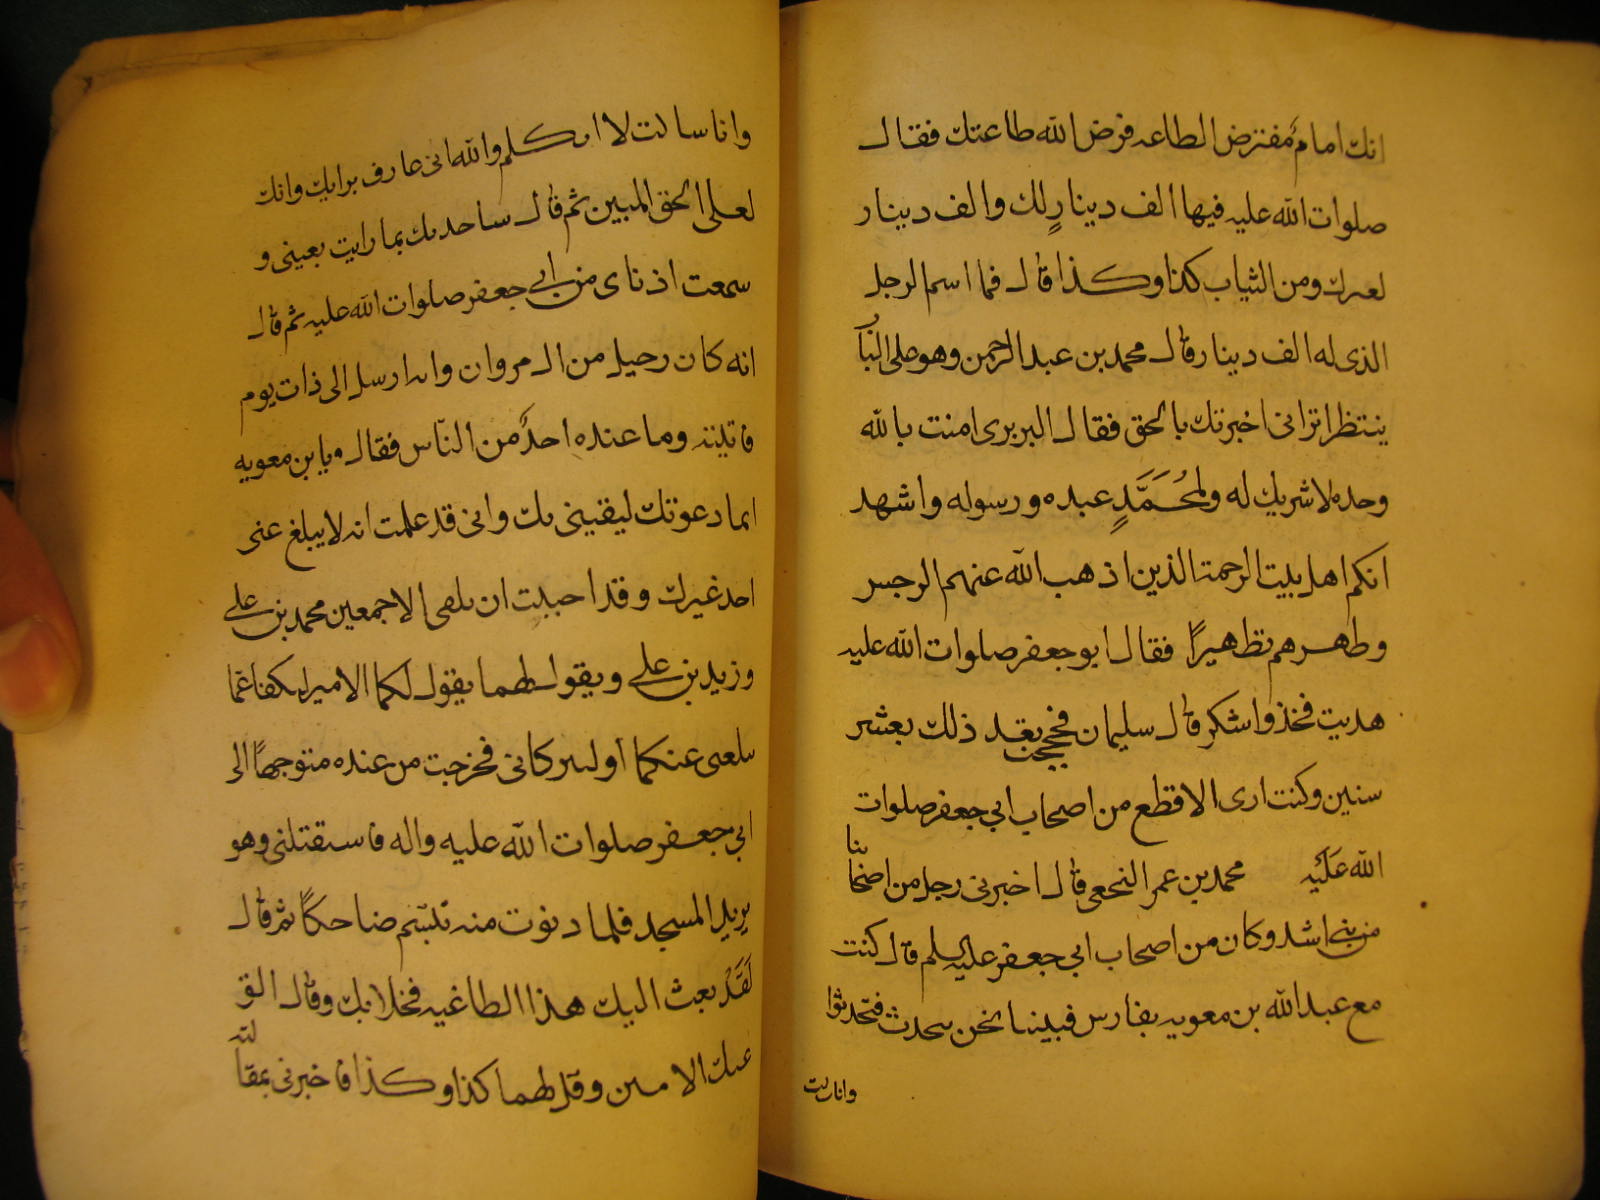 انك امام مفترض الطاعه فرض الله طاعتك فقال
صلوات الله عليه فيها الف دينار لك والف دينار
لغيرك ومن الثياب كذا وكذا قال فما اسم الرجل
الذى له الف دينار قال محمد بن عبد الرحمن وهو على الباب
ينتظر اترانى اخبرتك بالحق فقال البربرى امنت بالله
وحده لا شريك له وبمُحَمَّدٍ عبده ورسوله واشهد
انكم اهل بيت الرحمة الذين اذهب الله عنهم الرجس
وطهرهم تطهيرًا فقال ابو جعفر صلوات الله عليه
هديت فخذ واشكر قال سليمان فحججت بعد ذلك بعشر
سنين وكنت ارى الاقطع من اصحاب ابى جعفر صلوات
الله عَلَيْه محمد بن عمر النخعى قال اخبرنى رجل من اصحابنا
من بنى اسد وكان من اصحاب ابى جعفر عليه السلم قال كنت
مع عبد الله بن معويه بفارس فبينما نحن نتحدث فتحدثوا
وانا ساكت
وانا ساكت لا اتكلم والله انى عارف برايك وانك
لعلى الحق المبين ثم قال ساحدثك بما رايت بعينى و
سمعت اذناى من ابى جعفر صلوات الله عليه ثم قال
انه كان رجيل من ال مروان وانه ارسل الى ذات يوم
فاتيته وما عنده احدٌ من الناس فقال يا بن معويه
انما دعوتك ليقينى بك وانى قد علمت انه لا يبلغ عنى
احد غيرك وقد احببت ان تلقى الاجمعين محمد بن على
وزيد بن على وتقول لهما يقول لكما الامير لتكفا عما
يبلغنى عنكما او لتتركانى فخرجت من عنده متوجهًا الى
ابى جعفر صلوات الله عليه واله فاستقبلنى وهو
يريد المسجد فلما دنوت منه تبسّم ضاحكًا ثم قال
لَقَد بعث اليك هذا الطاغيه فخلا بك وقال الق
عميك الامين وقل لهما كذا وكذا فاخبرنى بمقالته